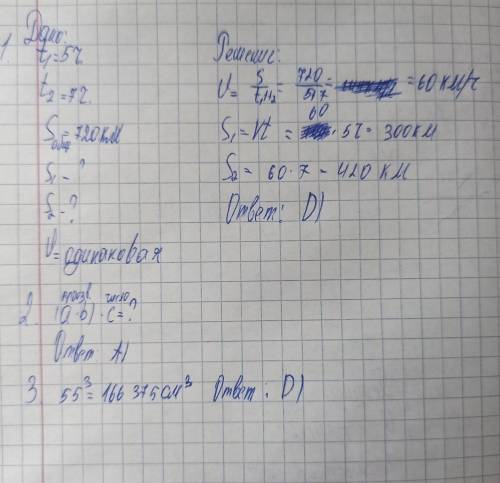 1. Дано:
t₁=5ч.
t₂=7ч.
Sобщ=720км
S₁-?
S₂-?
V=одинаковая
Решение:
V= S/t₁+t₂ = 720/5+7 = = 60 км/ч
S₁=Vt = 60 · 5ч= 300км
S₂= 60·7 = 420 км
Ответ: D)
2. произв. число
(a·b)·c=?
Ответ A)
3. 55³=166 375см³ Ответ: D)